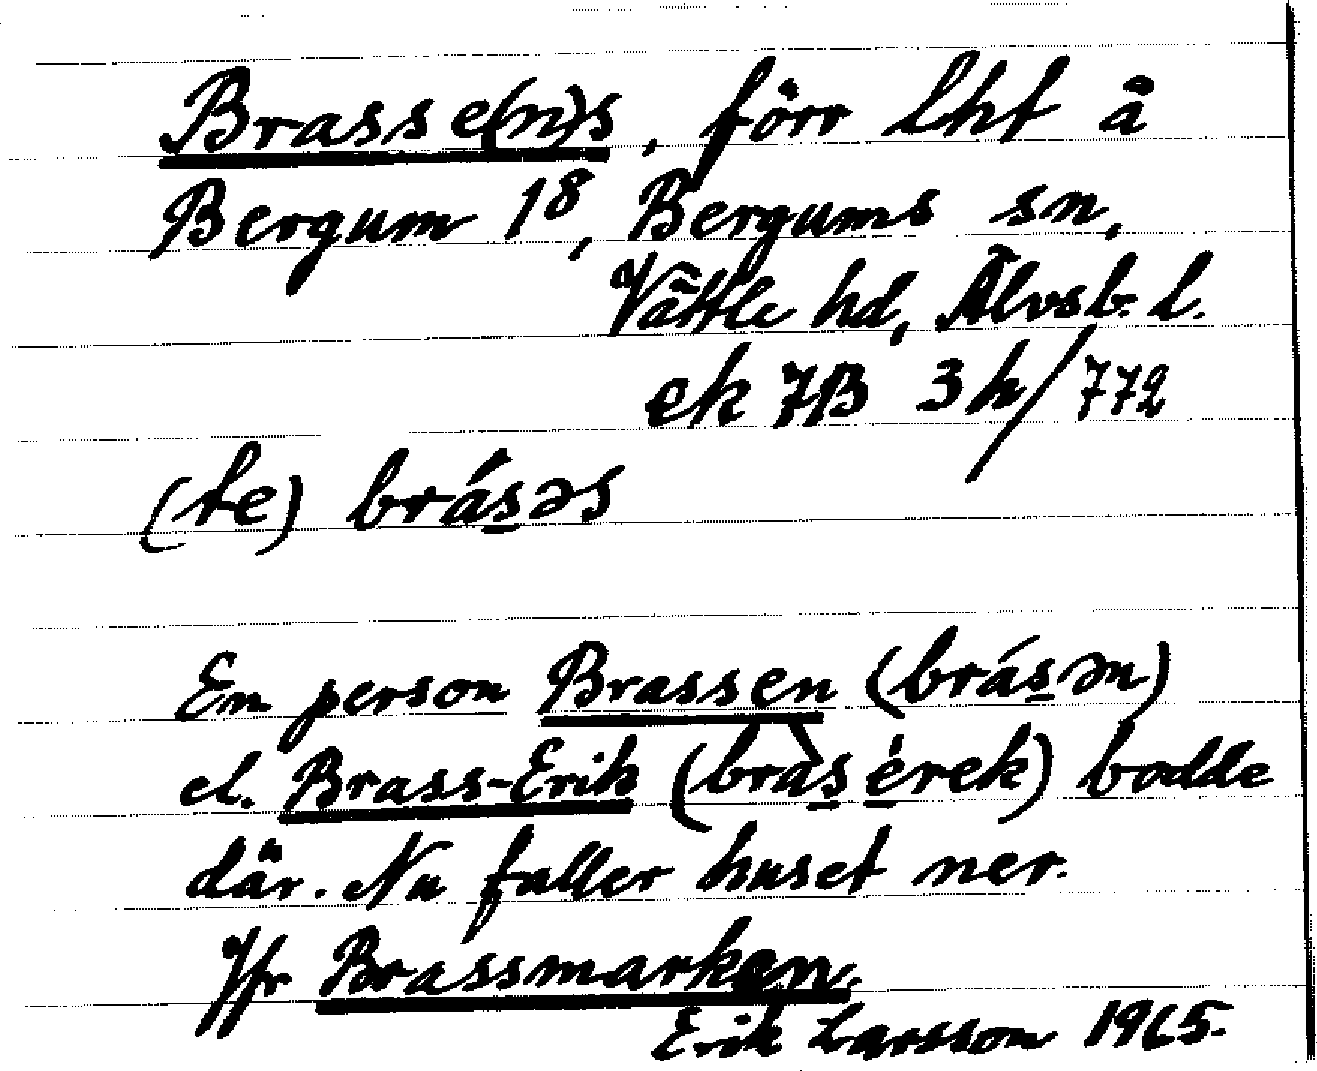 Brasse(n)s, förr lht å
Bergum 1⁸, Bergums sn,
Vättle hd, Älvsb. l.
ek 7B 3h/772
(te) brás̱əs
En person Brassen (brás̱ən)
el. Brass-Erik (bràs̱ é̱rek) bodde
där. Nu faller huset ner.
Jfr Brassmarken.
Erik Larsson 1965.